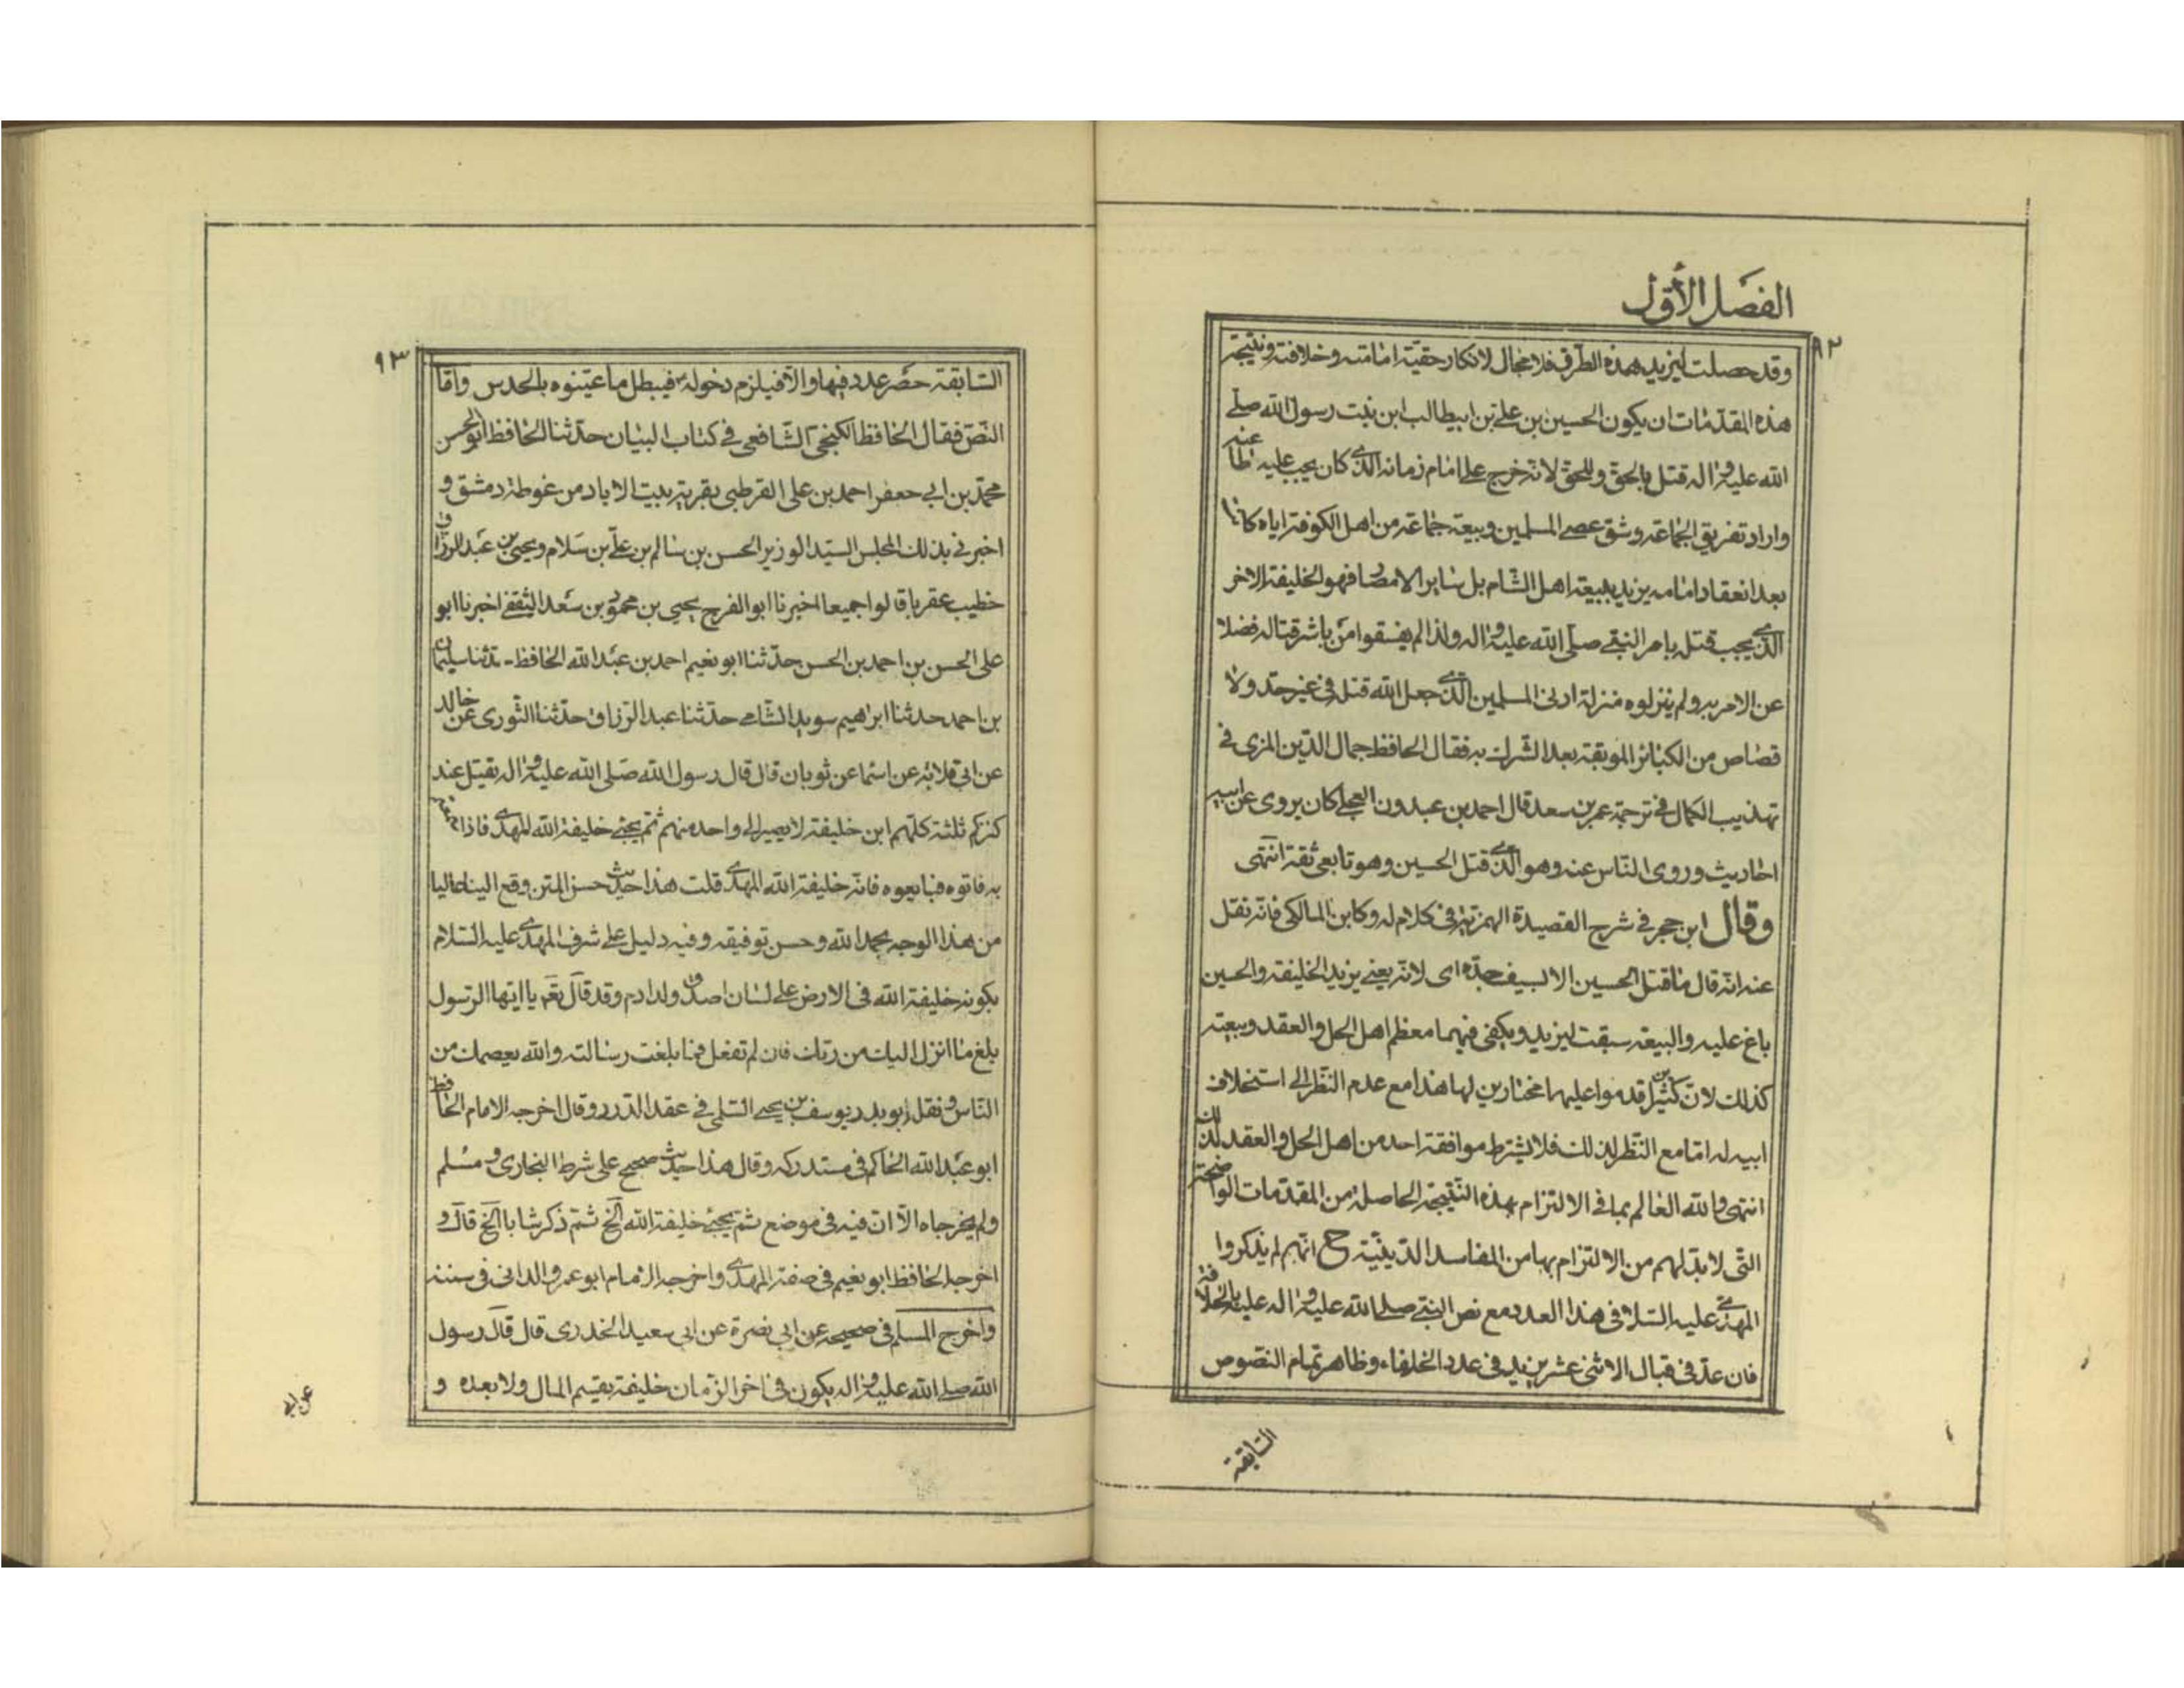 الفصل الأول
٩٢
وقد حصلت ليزيد بهذه الطرق فلا مجال لانكار حقية امامته وخلافته ونتيجة
هذه المقدمات ان يكون الحسين بن علي بن ابيطالب ابن بنت رسول الله صلى
الله عليه واله قتل بالحق وللحق لانه خرج على امام زمانه الذي كان يجب عليه طاعته
واراد تفريق الجماعة وشق عصى المسلمين وبيعة جماعة من اهل الكوفة اياه كانا
بعد انعقاد امامه يزيد ببيعة اهل الشام بل ساير الامصار فهو الخليفة الاخر
الذي يجب قتله بامر النبي صلى الله عليه واله ولذا لم يفسقوا من باشر قتاله فضلا
عن الامر به ولم ينزلوه منزلة ادنى المسلمين الذي جعل الله قتله في غير حد ولا
قصاص من الكبائر الموبقة بعد الشرك به فقال الحافظ جمال الدين المزي في
تهذيب الكمال في ترجمة عمر بن سعد قال احمد بن عبدون العجلي كان يروى عن ابيه
احاديث وروى الناس عنه وهو الذي قتل الحسين وهو تابعي ثقة انتهى
وقال ابن حجر في شرح القصيدة الهمزية في كلام له وكابن المالكي فانه نقل
عنه انه قال ما قتل الحسين الا بسيف جده اى لانه يعني يزيد الخليفة والحسين
باغ عليه والبيعة سبقت ليزيد ويكفي فيهما معظم اهل الحل والعقد وبيعته
كذلك لان كثيرين قدموا عليها مختارين لها هذا مع عدم النظر الى استخلاف
ابيه له اما مع النظر لذلك فلا يشترط موافقة احد من اهل الحل والعقد لذلك
انتهى والله العالم بما في الالتزام بهذه النتيجة الحاصلة من المقدمات الواضحة
التى لا بد لهم من الالتزام بها من المفاسد الدينية ح انهم لم يذكروا
المهدي عليه السلام في هذا العدد مع نص النبي صلى الله عليه واله عليه بالخلافة
فان عد في قبال الاثنى عشر يزيد في عدد الخلفاء وظاهر تمام النصوص
السابقة
٩٣
السابقة حصر عدد فيها والا فيلزم دخوله فيبطل ما عينوه بالحدس واما
النص فقال الحافظ الكنجي الشافعي في كتاب البيان حدثنا الحافظ ابو الحسن
محمد بن ابى جعفر احمد بن على القرطبى بقرية بيت الاباد من غوطة دمشق و
اخبرني بذلك المجلس السيد الوزير الحسن بن سالم بن علي بن سلام ويحيى بن عبد الرزاق
خطيب عقربا قالوا جميعا اخبرنا ابو الفرج يحيى بن محمود بن سعد الثقفي اخبرنا ابو
على الحسن بن احمد بن الحسن حدثنا ابو نعيم احمد بن عبد الله الحافظ حدثنا سليمان
بن احمد حدثنا ابراهيم سويد الشامي حدثنا عبد الرزاق حدثنا الثورى عن خالد
عن ابى قلابه عن اسما عن ثوبان قال قال رسول الله صلى الله عليه واله يقتل عند
كنزكم ثلثة كلهم ابن خليفة لا يصير الى واحد منهم ثم يجئ خليفة الله المهدي فاذا سمعتم
به فاتوه فبايعوه فانه خليفة الله المهدي قلت هذا حديث حسن المتن وقع الينا عاليا
من هذا الوجه بحمد الله وحسن توفيقه وفيه دليل على شرف المهدي عليه السلام
بكونه خليفة الله في الارض على لسان اصدق ولد ادم وقد قال تعم يا ايها الرسول
بلغ ما انزل اليك من ربك فان لم تفعل فما بلغت رسالته والله يعصمك من
الناس ونقل ابو بدر يوسف بن يحيى السلمى في عقد الدرر وقال اخرجه الامام الحافظ
ابو عبد الله الحاكم في مستدركه وقال هذا حديث صحيح على شرط البخارى ومسلم
ولم يخرجاه الا ان فيه في موضع ثم يجئ خليفة الله الخ ثم ذكر شابا الخ قال و
اخرجه الحافظ ابو نعيم في صفة المهدي واخرجه الامام ابو عمرو الدانى في سننه
واخرج المسلم في صحيحه عن ابى نضرة عن ابى سعيد الخدرى قال قال رسول
الله صلى الله عليه واله يكون في اخر الزمان خليفة يقسم المال ولا يعده و
عن ابى